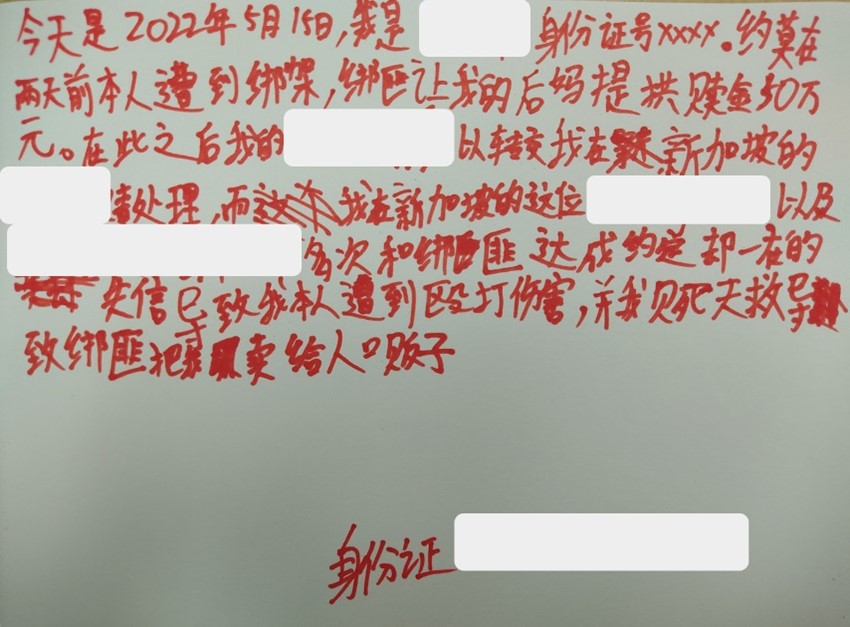 今天是2022年5月15日,我是 身份证号xxxx。约莫在
两天前本人遭到绑架,绑匪让我的后妈提供赎金50万
元。在此之后我的 以转交我在 新加坡的
处理,而 我在新加坡的这位 以及
多次和绑匪达成约定却一在的
失信 致我本人遭到殴打伤害,并 死 救导
致绑匪把 卖给人口贩子
身份证